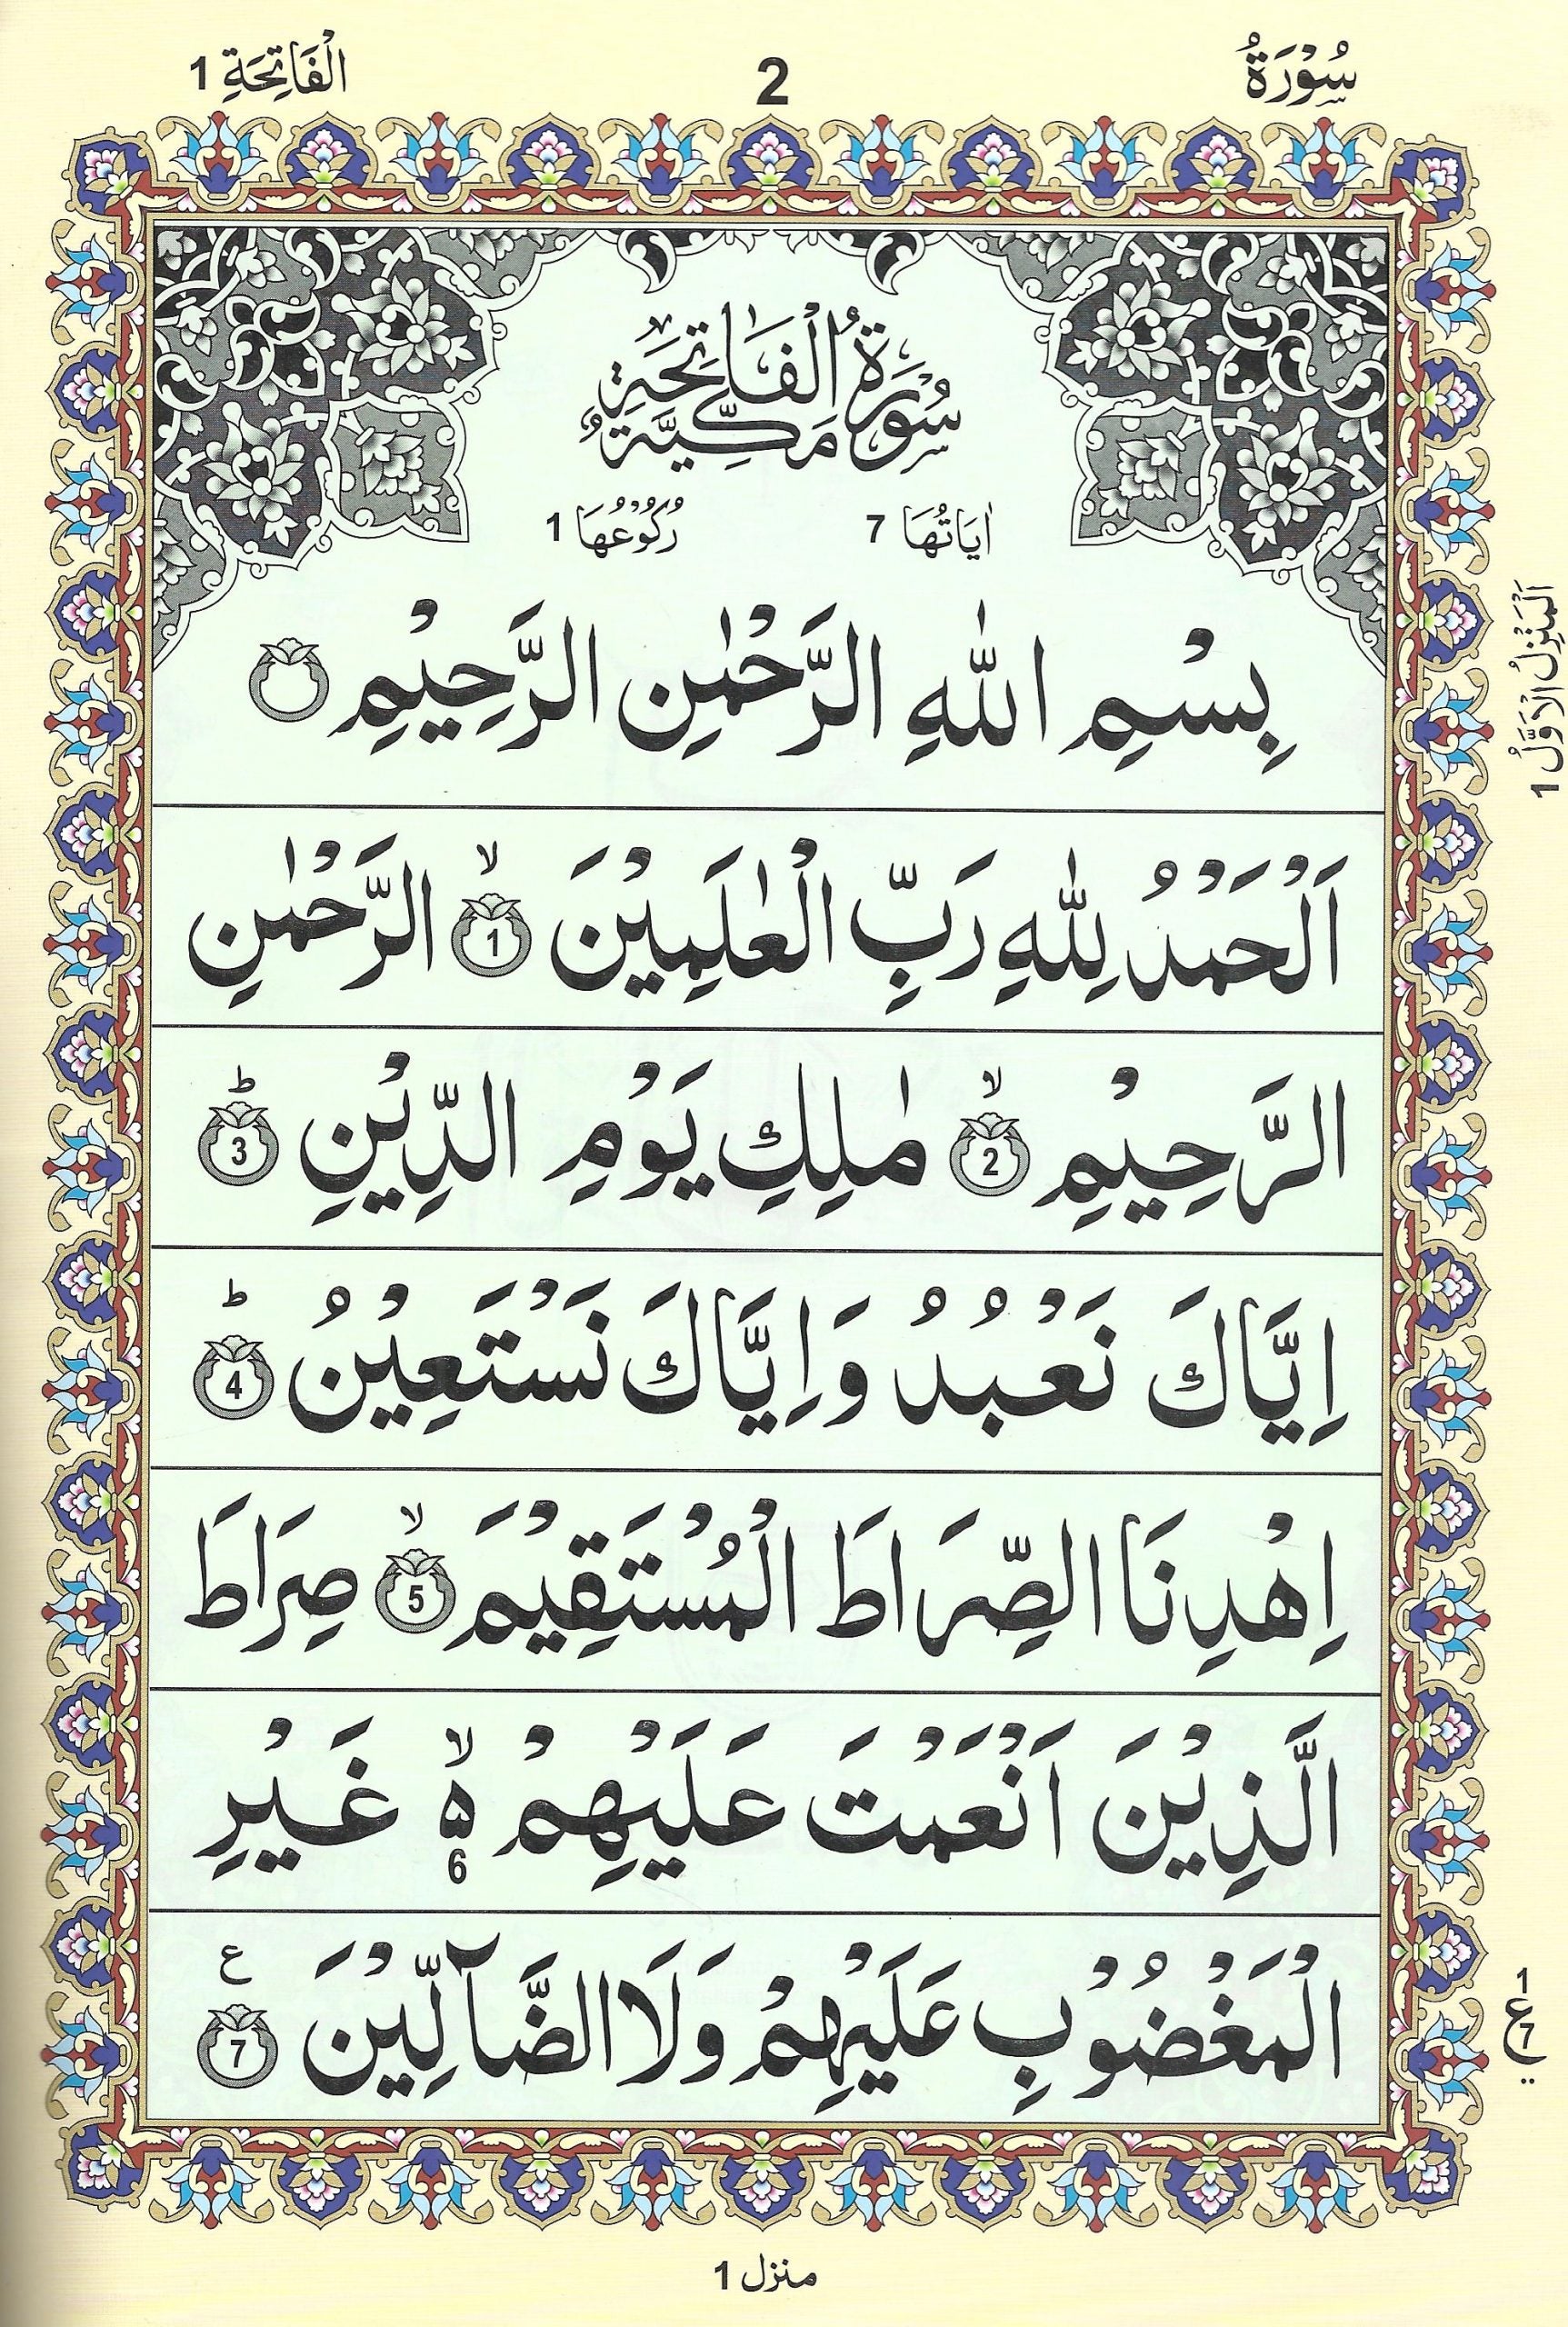 سُوْرَةُ 2 الْفَاتِحَةِ 1
سُوْرَةُ الْفَاتِحَةِ
مَكِّيَّةٌ
اٰيَاتُهَا 7 رُكُوْعُهَا 1
بِسْمِ اللّٰهِ الرَّحْمٰنِ الرَّحِيْمِ
اَلْحَمْدُ لِلّٰهِ رَبِّ الْعٰلَمِيْنَ ۙ 1 الرَّحْمٰنِ
الرَّحِيْمِ ۙ 2 مٰلِكِ يَوْمِ الدِّيْنِ ؕ 3
اِيَّاكَ نَعْبُدُ وَاِيَّاكَ نَسْتَعِيْنُ ؕ 4
اِهْدِنَا الصِّرَاطَ الْمُسْتَقِيْمَ ۙ 5 صِرَاطَ
الَّذِيْنَ اَنْعَمْتَ عَلَيْهِمْ ۙ ۵ 6 غَيْرِ
الْمَغْضُوْبِ عَلَيْهِمْ وَلَا الضَّآلِّيْنَ ع 7
اَلْمَنْزِلُ الْاَوَّلُ 1
1 ع 7
منزل 1